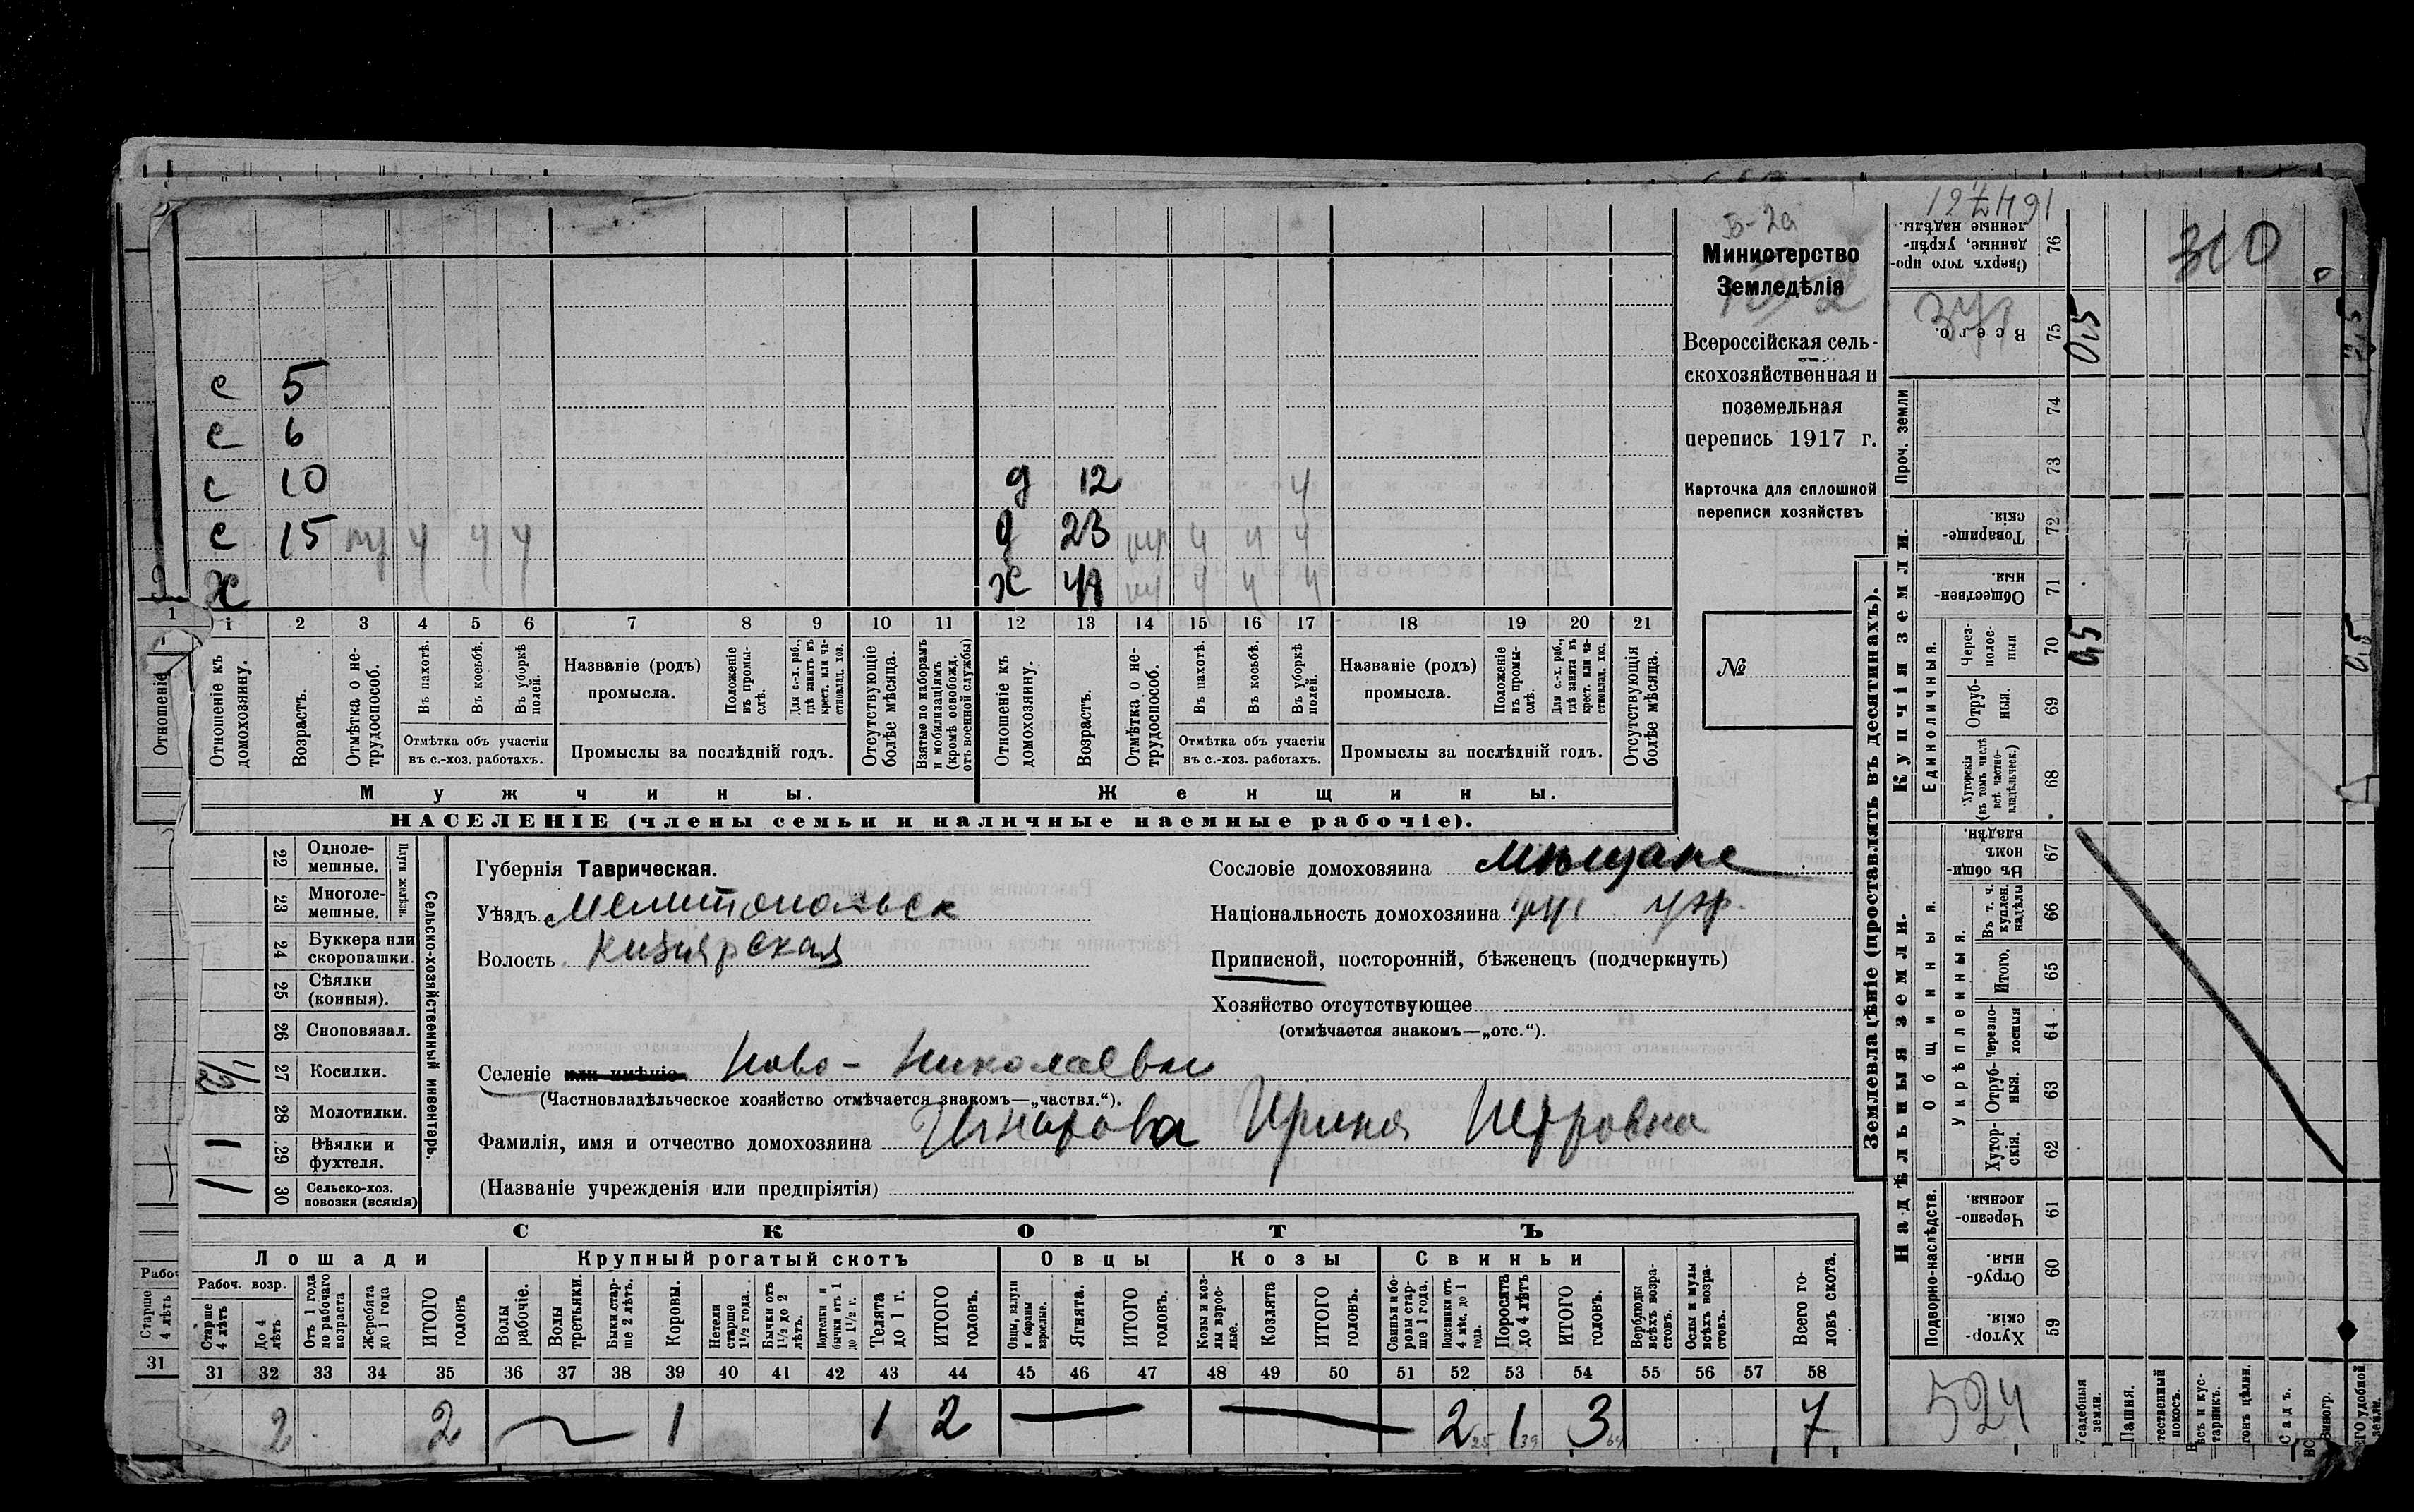 Б-2а
Министерство
Земледѣлія
Всероссійская сель-
скохозяйственная и
поземельная
перепись 1917 г.
Карточка для сплошной
переписи хозяйствъ
№
с 5
с 6
с 10 д 12 ч
с 15 ч ч ч д 23 ч ч ч
х х ч ч ч
1 2 3 4 5 6 7 8 9 10 11 12 13 14 15 16 17 18 19 20 21
Отношеніе къ домохозяину.
Возрастъ.
Отмѣтка о не-трудоспособ.
Въ пахотѣ.
Въ косьбѣ.
Въ уборкѣ полей.
Отмѣтка объ участіи
въ с.-хоз. работахъ.
Названіе (родъ)
промысла.
Положеніе въ промы-слѣ.
Для с.-х. раб., гдѣ занятъ въ крест. или ча-стновлад. хоз.
Промыслы за послѣдній годъ.
Отсутствующіе болѣе мѣсяца.
Взятые по наборамъ и мобилизаціямъ (кромѣ освобожд. отъ военной службы)
Отношеніе къ домохозяину.
Возрастъ.
Отмѣтка о не-трудоспособ.
Въ пахотѣ.
Въ косьбѣ.
Въ уборкѣ полей.
Отмѣтка объ участіи
въ с.-хоз. работахъ.
Названіе (родъ)
промысла.
Положеніе въ промы-слѣ.
Для с.-х. раб., гдѣ занята въ крест. или ча-стновлад. хоз.
Промыслы за послѣдній годъ.
Отсутствующія болѣе мѣсяца.
Мужчины. Женщины.
НАСЕЛЕНІЕ (члены семьи и наличные наемные рабочіе).
Сельско-хозяйственный инвентарь.
Плуги желѣзн.
22 Одноле-мешные.
23 Многоле-мешные.
24 Буккера или скоропашки.
25 Сѣялки (конныя).
26 Сноповязал.
1/2 27 Косилки.
28 Молотилки.
1 29 Вѣялки и фухтеля.
1 30 Сельско-хоз. повозки (всякія)
Губернія Таврическая.
Уѣздъ Мелитопольск
Волость Кизіярская
Сословіе домохозяина Мѣщане
Національность домохозяина укр.
Приписной, посторонній, бѣженецъ (подчеркнуть)
Хозяйство отсутствующее
(отмѣчается знакомъ—„отс.“).
Селеніе или имѣніе Ново-Николаевка
(Частновладѣльческое хозяйство отмѣчается знакомъ—„частвл.“).
Фамилія, имя и отчество домохозяина Ирина Петровна
(Названіе учрежденія или предпріятія)
СКОТЪ
Лошади Крупный рогатый скотъ Овцы Козы Свиньи
Рабоч. возр.
Старше 4 лѣтъ
До 4 лѣтъ
Отъ 1 года до рабочаго возраста
Жеребята до 1 года
ИТОГО головъ
Волы рабочіе.
Волы третьяки.
Быки стар-ше 2 лѣтъ.
Коровы.
Нетели старше 1½ года.
Бычки отъ 1½ до 2 лѣтъ.
Подтелки и бычки отъ 1 до 1½ г.
Телята до 1 г.
ИТОГО головъ.
Овцы, валухи и бараны взрослые.
Ягнята.
ИТОГО головъ.
Козы и коз-лы взрос-лые.
Козлята
ИТОГО головъ.
Свиньи и бо-ровы стар-ше 1 года.
Подсвинки отъ 4 мѣс. до 1 года.
Поросята до 4 лѣтъ
ИТОГО головъ.
Верблюды всѣхъ возра-стовъ.
Ослы и мулы всѣхъ возра-стовъ.
Всего го-ловъ скота.
31 32 33 34 35 36 37 38 39 40 41 42 43 44 45 46 47 48 49 50 51 52 53 54 55 56 57 58
2 2 1 1 2 2 25 1 39 3 64 7
Землевладѣніе (проставлять въ десятинахъ).
Купчія земли.
Надѣльныя земли.
Проч. земли
Единоличныя.
Общинныя.
Укрѣпленныя.
Подворно-наслѣдств.
164761
Сверхъ того про-данные, укрѣп-ленные надѣлы. 76
Всего. 75 0,5
74
73
Товарище-скія. 72
Обществен-ныя. 71
Через-полос-ныя 70 0,5
Отруб-ныя. 69
Хуторскія (въ томъ числѣ всѣ частно-владѣльческ.) 68
Въ общи-номъ владѣн. 67
Въ т. ч. куплен. надѣлы 66
Итого. 65
Черезпо-лосныя 64
Отруб-ныя. 63
Хутор-скія. 62
Черезпо-лосныя. 61
Отруб-ныя. 60
Хутор-скія. 59
310
524
Усадебныя земли.
Пашня.
Садъ.
Виногр.
0,5
Отношеніе
1
Старше 4 лѣтъ
31